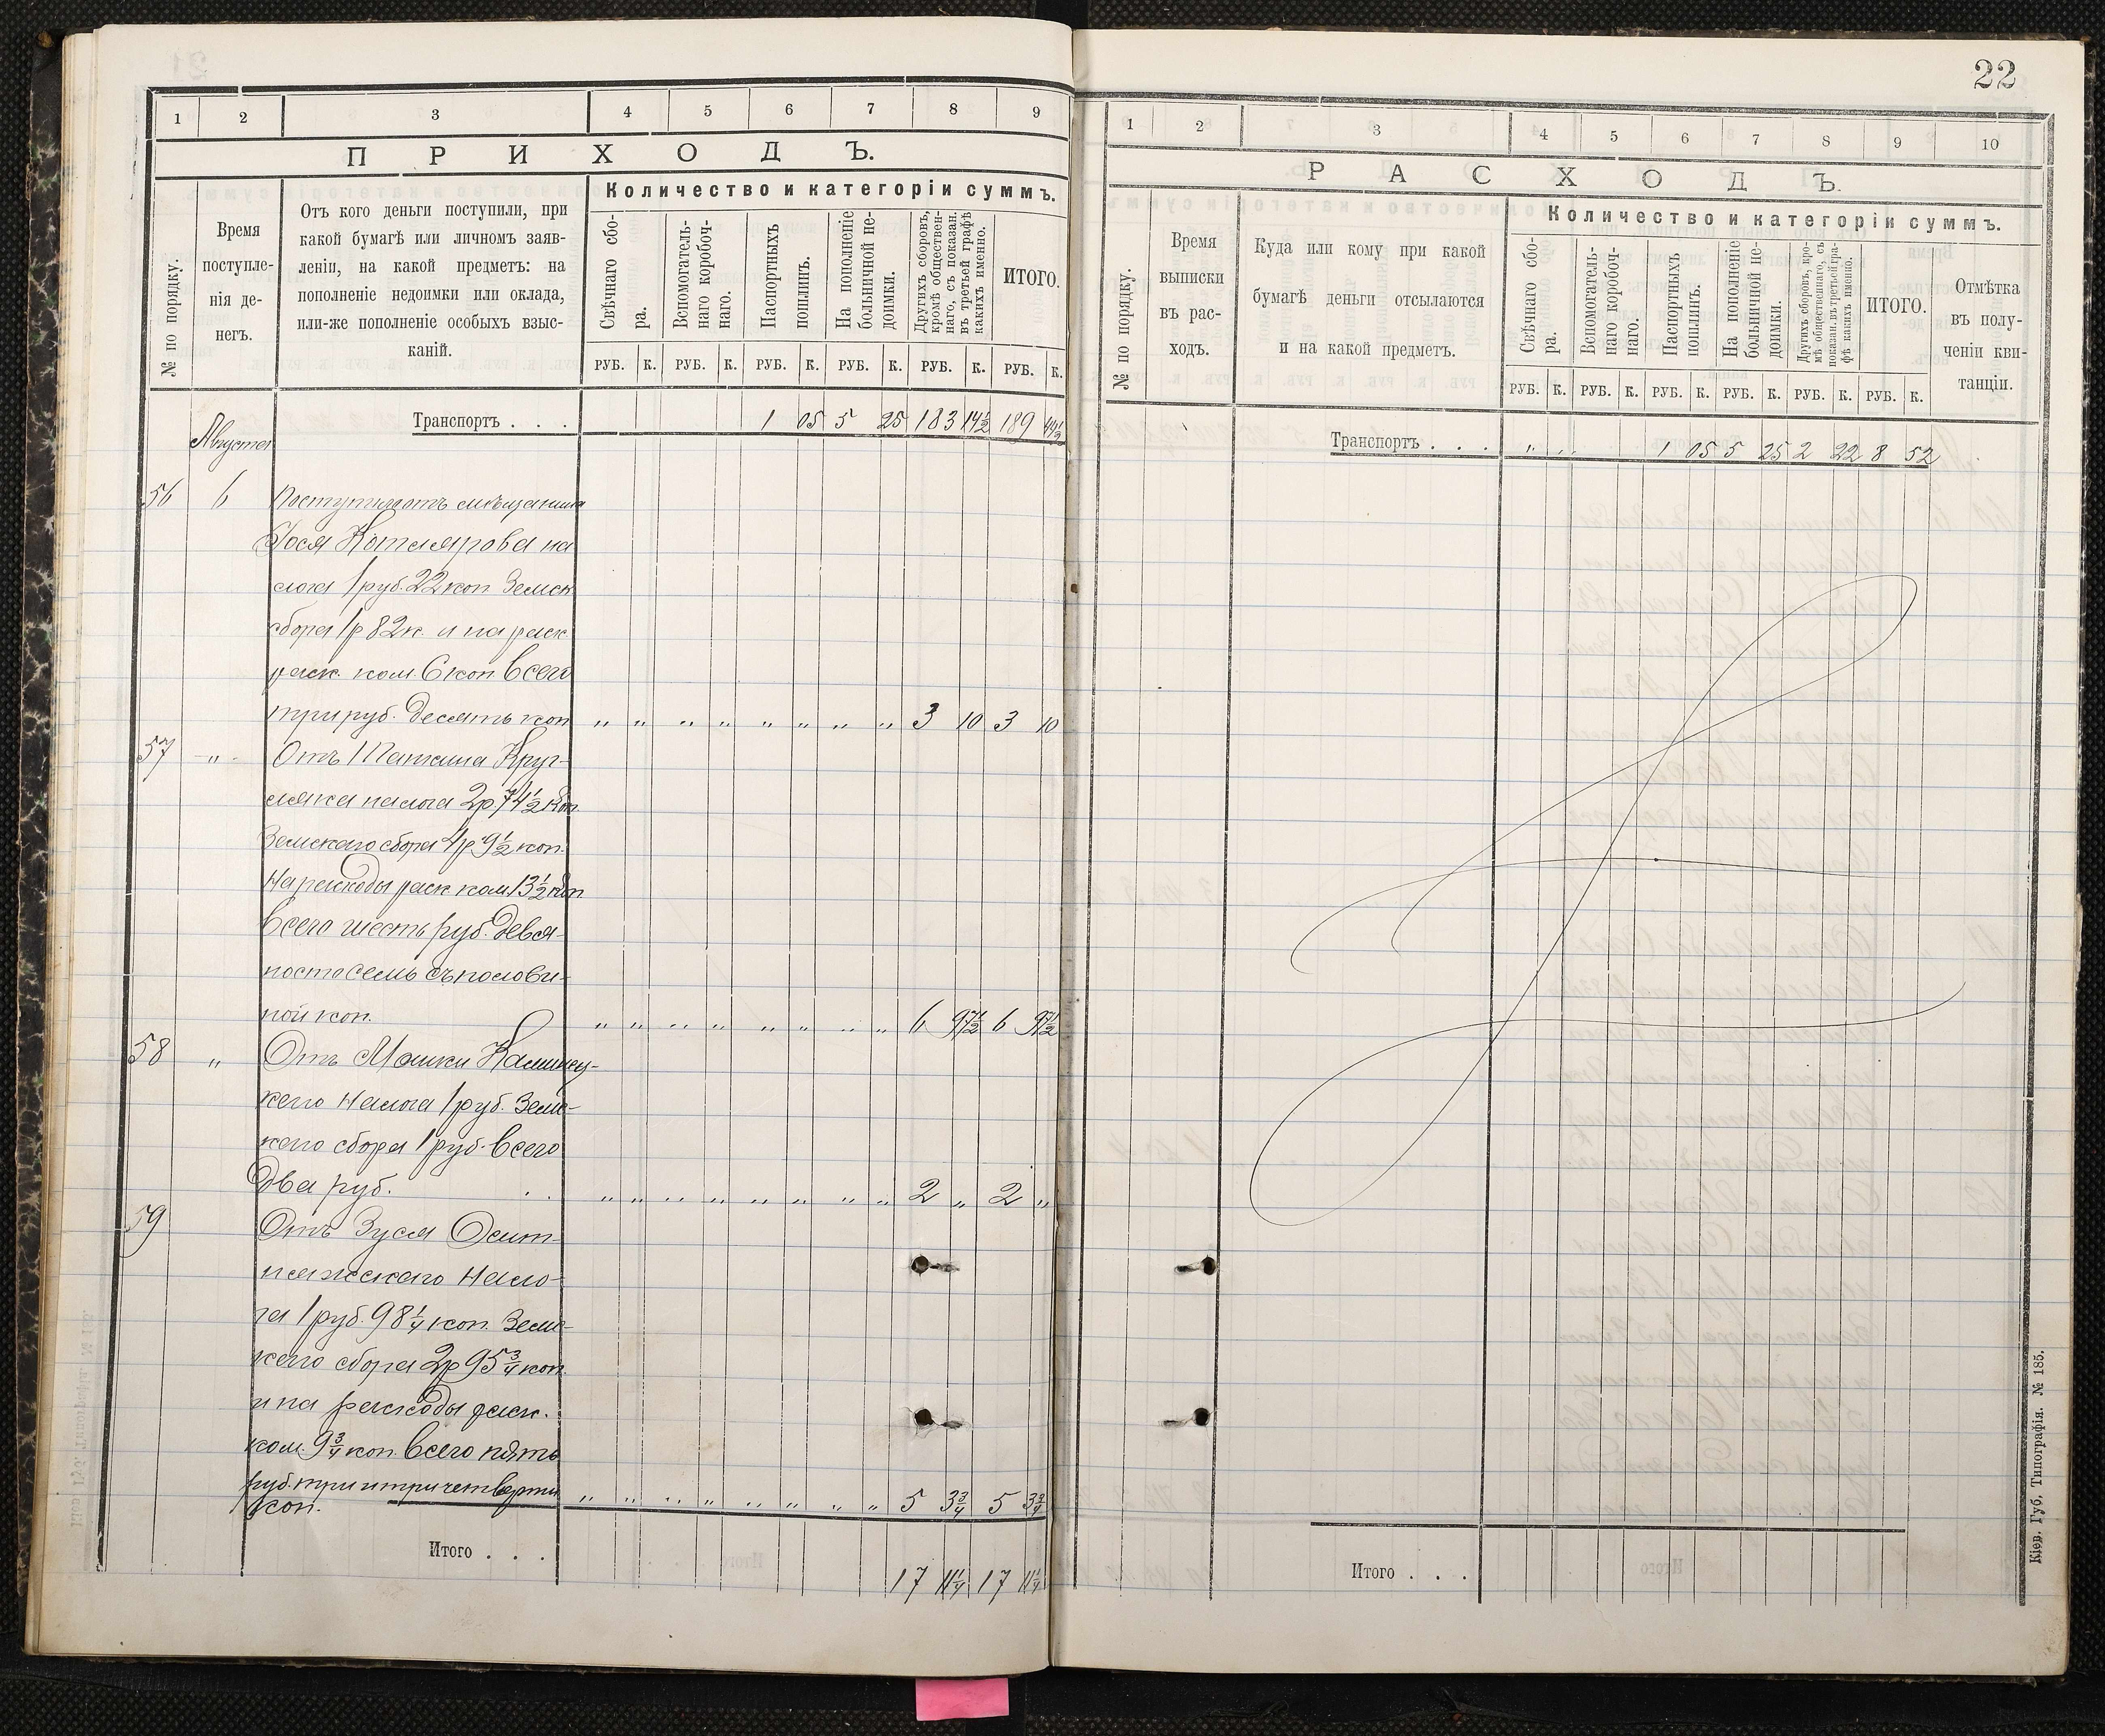 1 2 3 4 5 6 7 8 9
ПРИХОДЪ.
№ по порядку.
Время
поступле-
нія де-
негъ.
Отъ кого деньги поступили, при
какой бумагѣ или личномъ заяв-
леніи, на какой предметъ: на
пополненіе недоимки или оклада,
или-же пополненіе особыхъ взыс-
каній.
Количество и категоріи суммъ.
Свѣчнаго сбо-
ра.
Вспомогатель-
наго коробоч-
наго.
Паспортныхъ
пошлинъ.
На пополненіе
больничной не-
доимки.
Другихъ сборовъ,
кромѣ обществен-
наго, съ показан.
въ третьей графѣ
какихъ именно.
ИТОГО.
РУБ. К. РУБ. К. РУБ. К. РУБ. К. РУБ. К. РУБ. К.
Транспортъ . . . 1 05 5 25 183 14½ 189 44½
Августа
56 6 Поступило отъ мѣщанина
Іося Котлярова на
лога 1 руб. 22 коп Земск
сбора 1 р 82 к. и на раск.
раск. ком. 6 коп всего
три руб. десять коп „ „ „ „ „ „ „ „ 3 10 3 10
57 „ Отъ Круг-
ляка налога 2 р. 74½ коп.
Земскаго сбора 4 р 9½ коп.
На расходы раск ком 13½ коп
всего шесть руб. девя-
носто семь съ полови-
ной коп. „ „ „ „ „ „ „ „ 6 97½ 6 97½
58 „ Отъ Мошки
каго налога 1 руб. Земс-
каго сбора 1 руб. всего
два руб. „ „ „ „ „ „ „ „ 2 „ 2 „
59 Отъ Зуся Осит-
няжскаго нало-
га 1 руб. 98¼ коп. Земс-
каго сбора 2 р 95¾ коп.
и на расходы раск.
ком. 9¾ коп. всего пять
руб. три и три четверти
коп. „ „ „ „ „ „ „ „ 5 3¾ 5 3¾
Итого . . . 17 11¼ 17 11¼
22
1 2 3 4 5 6 7 8 9 10
РАСХОДЪ.
№ по порядку.
Время
выписки
въ рас-
ходъ.
Куда или кому при какой
бумагѣ деньги отсылаются
и на какой предметъ.
Количество и категоріи суммъ.
Свѣчнаго сбо-
ра.
Вспомогатель-
наго коробоч-
наго.
Паспортныхъ
пошлинъ.
На пополненіе
больничной не-
доимки.
Другихъ сборовъ, кро-
мѣ общественнаго, съ
показан. въ третьей гра-
фѣ какихъ именно.
ИТОГО.
Отмѣтка
въ полу-
ченіи кви-
танціи.
РУБ. К. РУБ. К. РУБ. К. РУБ. К. РУБ. К. РУБ. К.
Транспортъ . . . „ „ 1 05 5 25 2 22 8 52
Итого . . .
Кіев. Губ. Типографія. № 185.